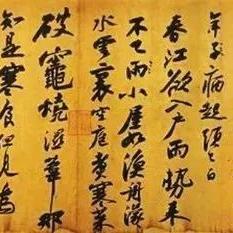 年子病起頭已白
春江欲入戶雨勢來
不已雨小屋如漁舟濛々
水雲裏空庖煮寒菜
破竈燒濕葦那
知是寒食但見烏